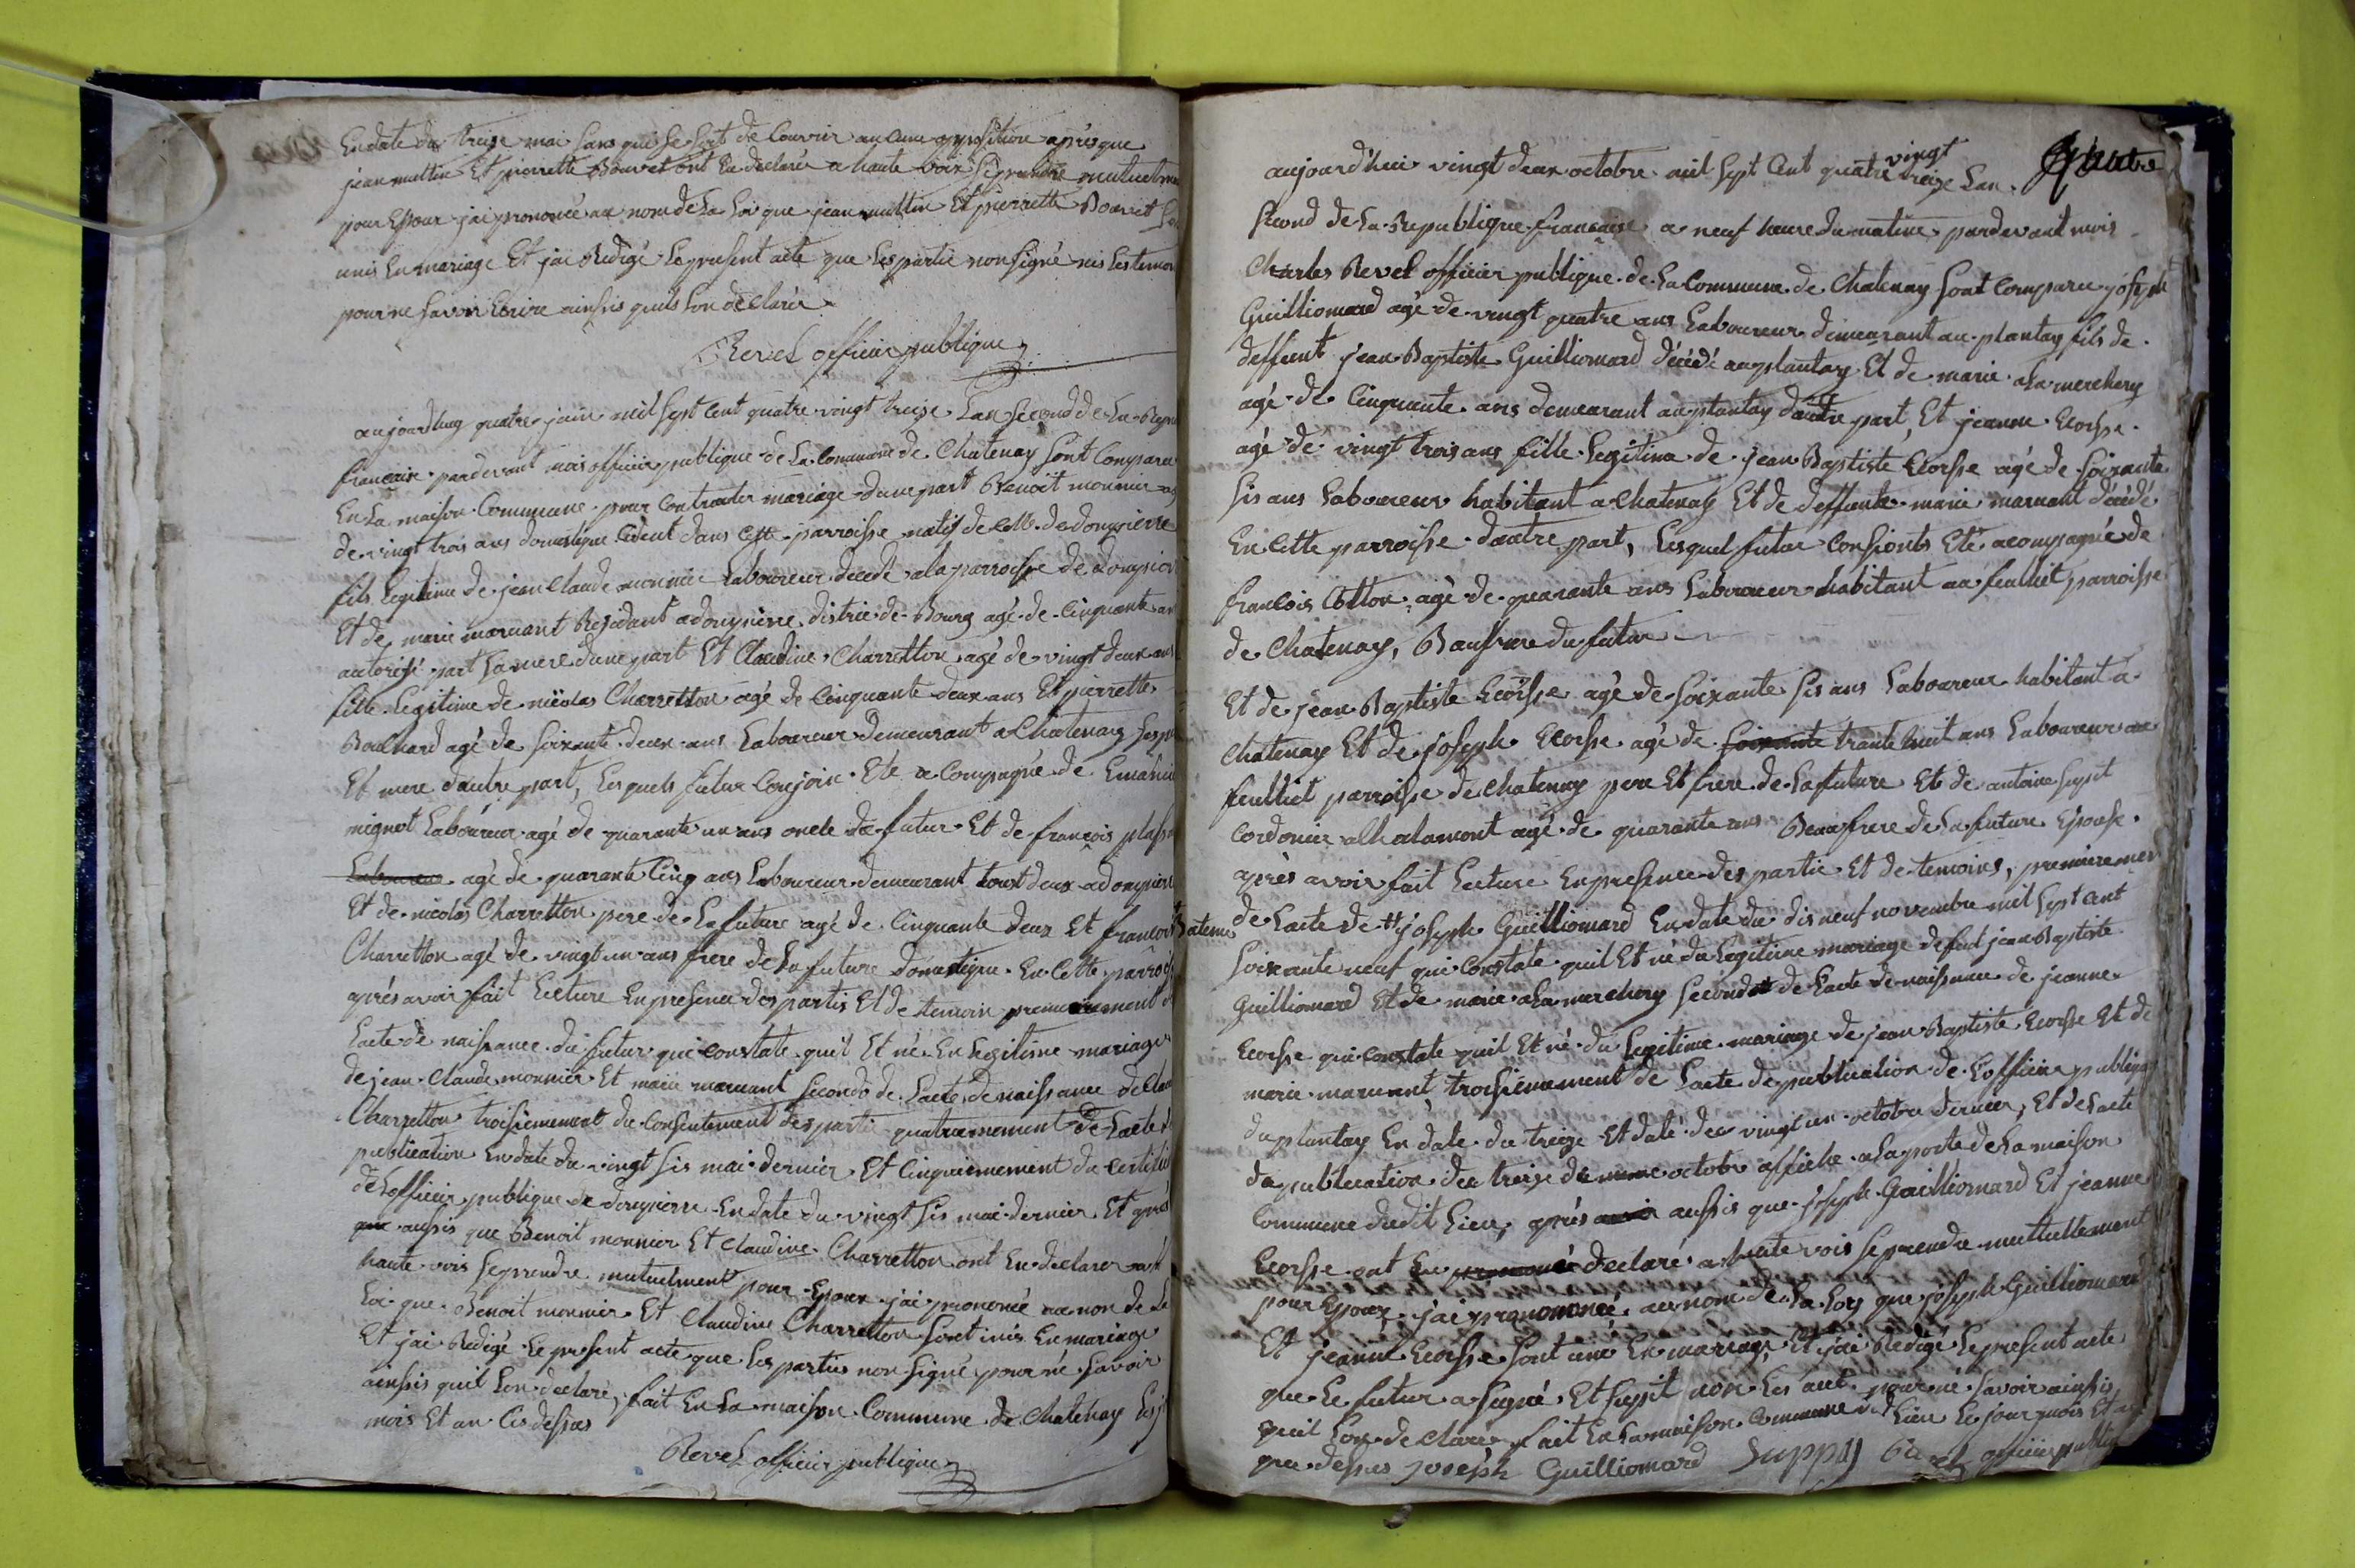 En date du treize mai sans qu'il se soit de Couvrir aucune opposition apres que
jean muttin Et pierrette Bouvet ont En declaré a haute voix se prendre mutuelmen
pour Epoux jai prononcée au nom de La Loi que jean muttin Et pierrette Bouvet
unis En mariage Et jai Redigé Le present acte que Les partie non signé nis Les temoi
pour ne savoir Ecrire ainsis quils Lon declarée
Revel officier publique
aujourdhuy quatre juin mil sept Cent quatre vingt treize Lan second de La Repu
francaise pardevant moi officier publique de La Commune de Chatenay sont Comparu
En La maison Commune pour Contracter mariage dune part Benoit monnier ag
de vingt trois ans domestique dans Cette parroisse natif de Celle de dompierre
fils Legitime de jean Claude monnier Laboureur decedé a la parroisse de dompier
Et de marie marnant Residant a dompierre distric de Bourg agé de Cinquante an
autorisé part sa mere dune part Et Claudine Charretton agé de vingt deux ans
fille Legitime de nicolas Charretton agé de Cinquante deux ans Et pierrette
Bouchard agé de soixante deux ans Laboureur demeurant a Chatenay ses pe
Et mere dautre part, Lesquels futur Conjoin Eté a Compagné de
mignot Laboureur agé de quarante un ans oncle du futur Et de francois
Laboureur agé de quarante Cinq ans Laboureur demeurant tout deux a dompierre
Et de nicolas Charretton pere de La future agé de Cinquante deux Et francois
Charretton agé de vingt un ans frere de La future domestique En Cette parrois
après avoir fait Lecture En presence des partis Et de temoin premierement d
Lacte de naissance du futur qui constate quil Et né En Legitime mariage
de jean Claude monnier Et marie marnant second de Lacte de naissance de Clau
Charretton troisiemement du Consentement des parti quatriemement de Lacte d
publication En date du vingt sis mai dernier Et Cinquiemement du Certific
de Lofficier publique de dompierre En date du vingt sis mai dernier Et après
que aussis que Benoit monnier Et Claudine Charretton ont En declarer a
haute voix se prendre mutuelment pour Epoux jai prononcée au nom de La
Loi que Benoit monnier Et Claudine Charretton sont unis En mariage
Et jai Redigé Le present acte que Les parties non signé pour ne savoir
ainsis quil Lon declaré, fait En La maison Commune de Chatenay Les j
mois Et an Cis dessus
Revel officier publique
quatre
aujourdhui vingt deux octobre mil sept Cent quatre vingt treize Lan
second de La Republique francaise a neuf heure du matin pardevant mois
Charles Revel officier publique de La Commune de Chatenay sont Comparu joseph
Guilliomard agé de vingt quatre ans Laboureur demeurant au plantay fils de
deffeunt jean Baptiste Guilliomard décédé au plantay Et de marie alamerchery
agé de Cinquante ans demeurant au plantay dautre part, Et jeanne Ecosse
agé de vingt trois ans fille Legitime de jean Baptiste Ecorsse agé de soixante
sis ans Laboureur habitant a Chatenay Et de deffunte marie marnant décédé
En Cette parroisse dautre part, Lesquel futur Conjoints Eté acompagnée de
francois Cotton agé de quarante ans Laboureur habitant au feulliet parroisse
de Chatenay, Baufrere du futur
Et de jean Baptiste Ecorsse agé de soixante sis ans Laboureur habitant a
Chatenay Et de joseph Ecorsse agé de soixante trante huit ans Laboureur au
feulliet parroisse de Chatenay pere Et frere de La future Et de antoine supit
Cordonier a Chalamont agé de quarante ans Beaufrere de La future Epouse
après avoir fait Lecture En presence des partie Et de temoins, premieremen
de Lacte de Bateme joseph Guilliomard En date du dis neuf novembre mil sept Cent
soixante neuf qui Constate quil Et né du Legitime mariage defud jean Baptiste
Guilliomard Et de marie alamerchery second de Lacte de naissance de jeanne
Ecorsse qui Constate quil Et né du Legitime mariage de jean Baptiste Ecorsse Et de
marie marnant, troisiemement de Lacte de publication de Lofficier publique
du plantay En date du treize Et daté du vingt un octobre dernier, Et de Lacte
de publication du treize du meme octobre affiche a La porte de La maison
Commune dudit Lieu, après avoir aussis que joseph Guilliomard Et jeanne
Ecorsse ont En prononcé declaré a haute vois se prendre mutuellement
pour Epoux, jai prononcé au nom de La Loy que joseph Guilliomard
Et jeanne Ecorsse sont unie En mariage, Et jai Redigé Le present acte
que Le futur a signé Et supit non Les autt pour né savoir ainsis
quil Lon declaré fait En La maison Commune du Lieu Le jour mois Et an
que dessus joseph Guilliomard Suppy Revel officier public